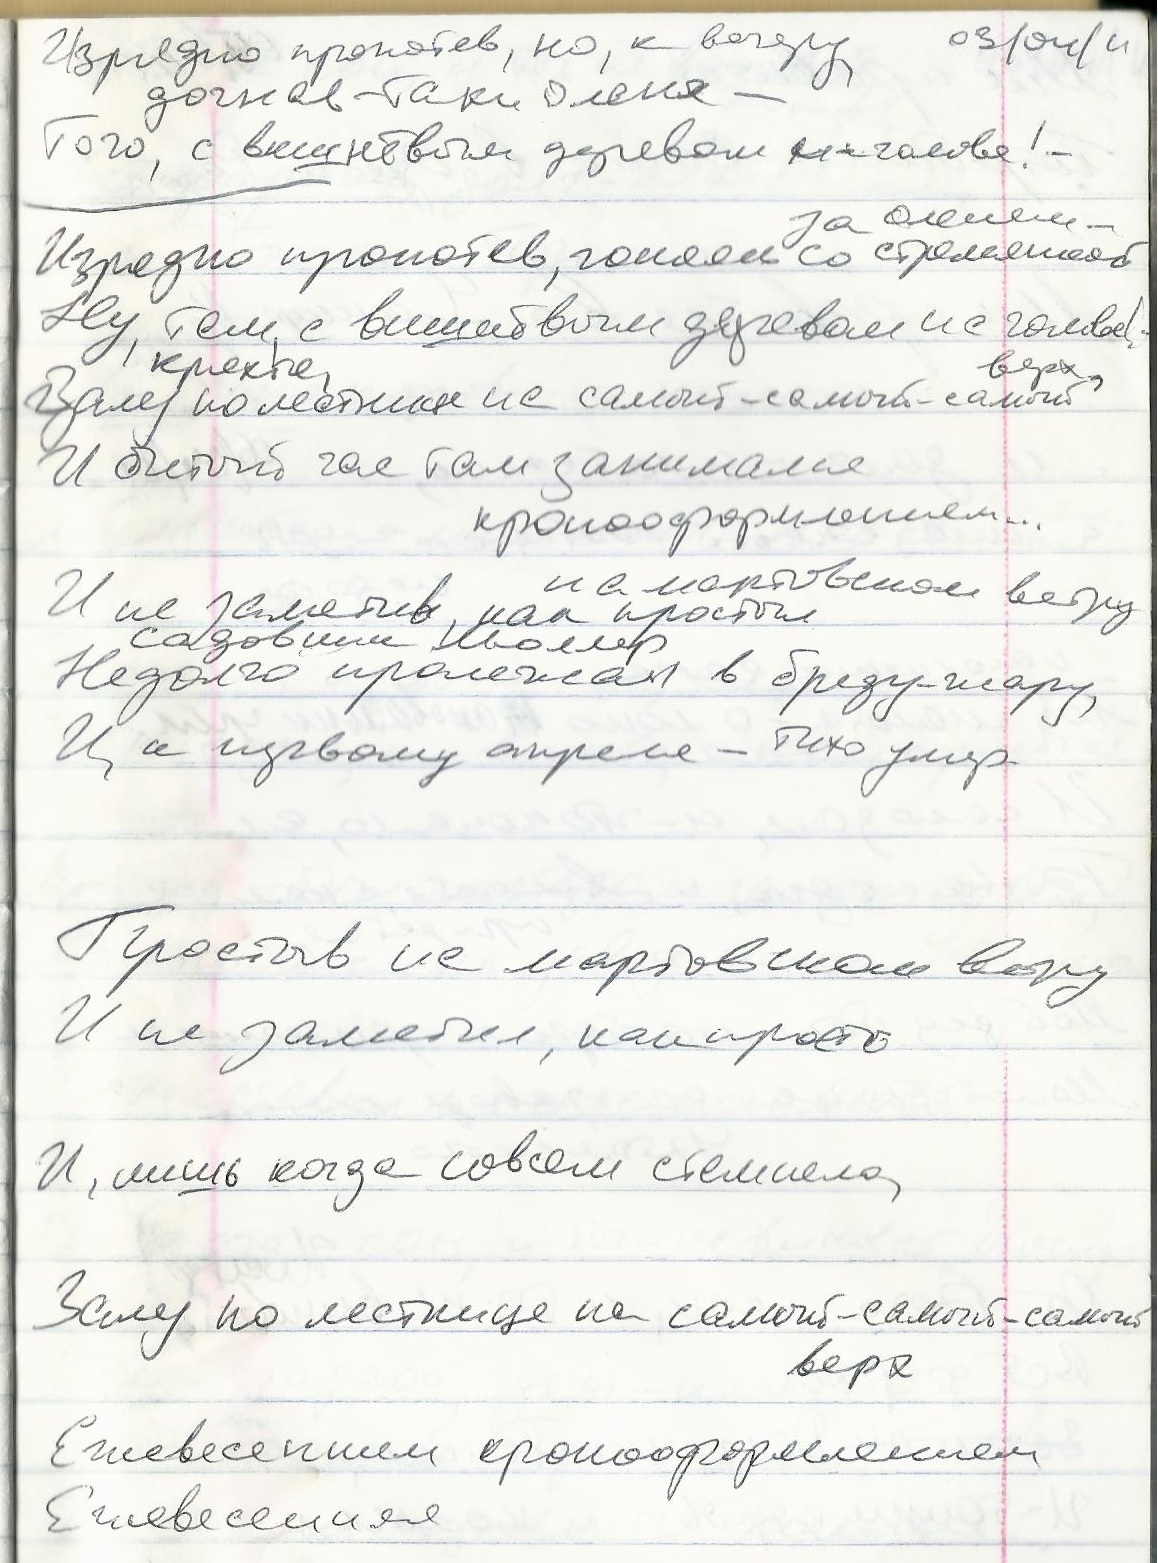 Изрядно пропотев, но, к вечеру, 03/04/11
догнав-таки оленя —
Того, с вишнёвым деревом на голове! —
за оленем —
Изрядно пропотев, гоняясь со стремянкой
Ну, тем, с вишнёвым деревом на голове! —
кряхтя,
Залез по лестнице на самый-самый-самый
верх,
И битый час там занимался
кронооформлением...
на мартовском ветру
И не заметив, как простыл
садовник
Недолго пролежал в бреду-жару,
И, к первому апреля — тихо умер
Простыв на мартовском ветру
И не заметил, как просто
И, лишь когда совсем стемнело,
Залез по лестнице на самый-самый-самый
верх
Ежевесенним кронооформлением
Ежевесенняя